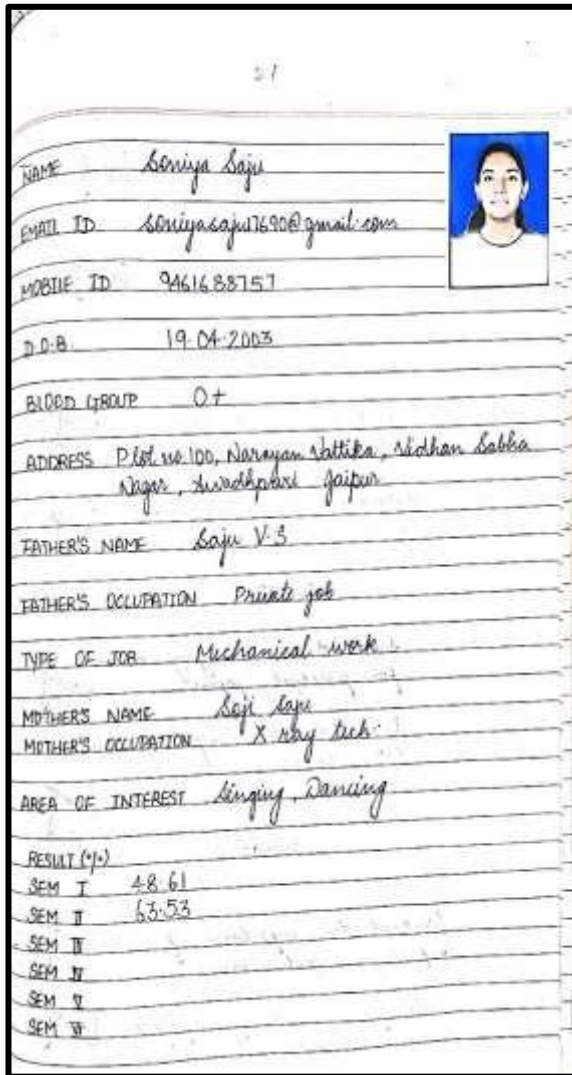 21
NAME Soniya Saju
EMAIL ID soniyasaju17690@gmail.com
MOBILE ID 9461688757
D.O.B. 19.04.2003
BLOOD GROUP O+
ADDRESS Plot no 100, Narayan Vattika, Vidhan Sabha
Nagar, Awadhpuri Jaipur
FATHER'S NAME Saju V.S
FATHER'S OCCUPATION Private job
TYPE OF JOB Mechanical work
MOTHER'S NAME Soji Saju
MOTHER'S OCCUPATION X ray tech.
AREA OF INTEREST Singing, Dancing
RESULT (%)
SEM I 48.61
SEM II 63.53
SEM IV
SEM V
SEM VI